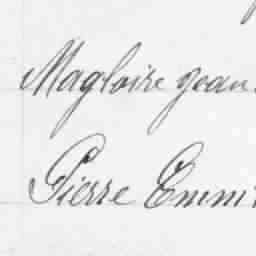 Magloire Jean
Pierre Emm